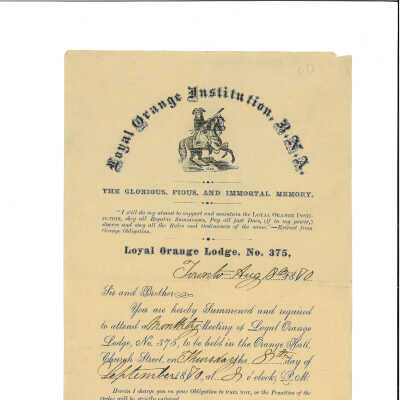 Loyal Orange Institution, B.N.A.
THE GLORIOUS, PIOUS, AND IMMORTAL MEMORY.
"I will do my utmost to support and maintain the LOYAL ORANGE INSTI-
TUTION, obey all Regular Summonses, Pay all just Dues, (if in my power,)
observe and obey all the Rules and Ordinances of the same."—Extract from
Orange Obligation.
Loyal Orange Lodge, No. 375,
Toronto Aug 1880
Sir and Brother
You are hereby Summoned and required
to attend a Monthly Meeting of Loyal Orange
Lodge, No. 375, to be held in the Orange Hall,
Church Street, on Thursday the 8th day of
September 1880, at 8 o'clock, P.M.
Herein I charge you on your Obligation to FAIL NOT, or the Penalties of the
Order will be strictly enforced